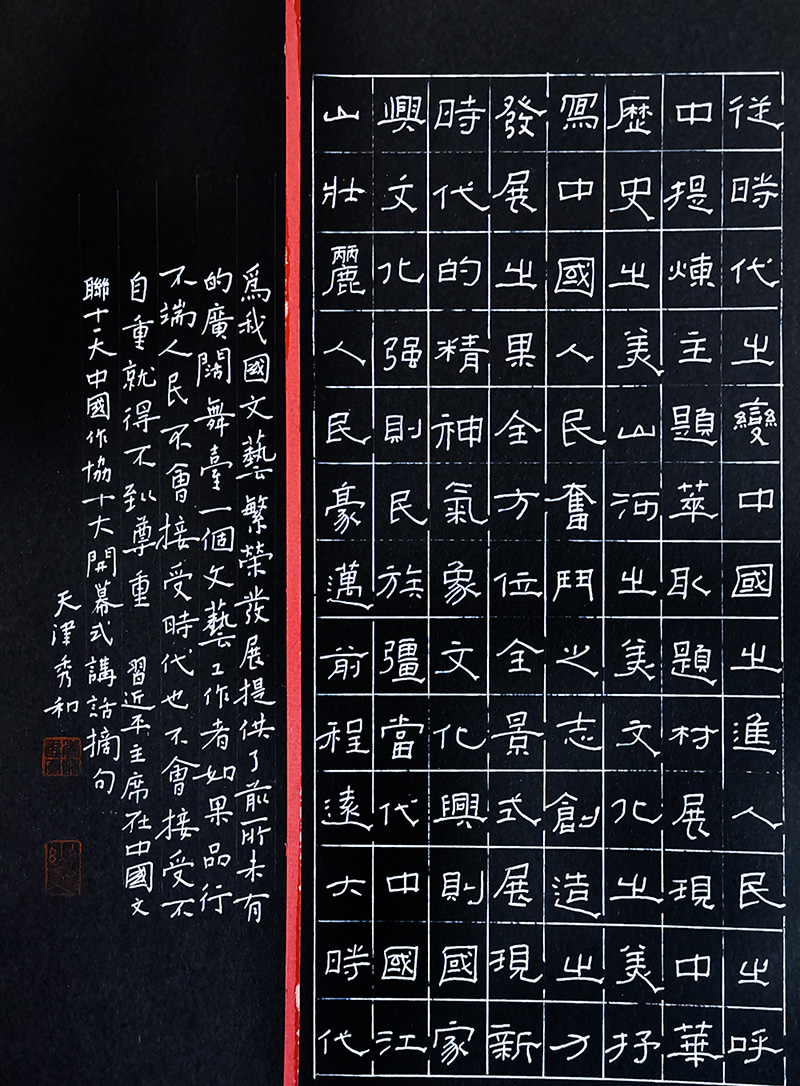 從時代之變中國之進人民之呼
中提煉主題萃取題材展現中華
歷史之美山河之美文化之美抒
寫中國人民奮鬥之志創造之力
發展之果全方位全景式展現新
時代的精神氣象文化興則國家
興文化强則民族彊當代中國江
山壯麗人民豪邁前程遠大時代
爲我國文藝繁榮發展提供了前所未有
的廣闊舞臺一個文藝工作者如果品行
不端人民不會接受時代也不會接受不
自重就得不到尊重 習近平主席在中國文
聯十一大中國作協十大開幕式講話摘句
天津秀和